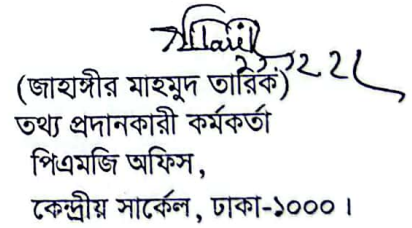 (জাহাঙ্গীর মাহমুদ তারিক)
তথ্য প্রদানকারী কর্মকর্তা
পিএমজি অফিস,
কেন্দ্রীয় সার্কেল, ঢাকা-১০০০।